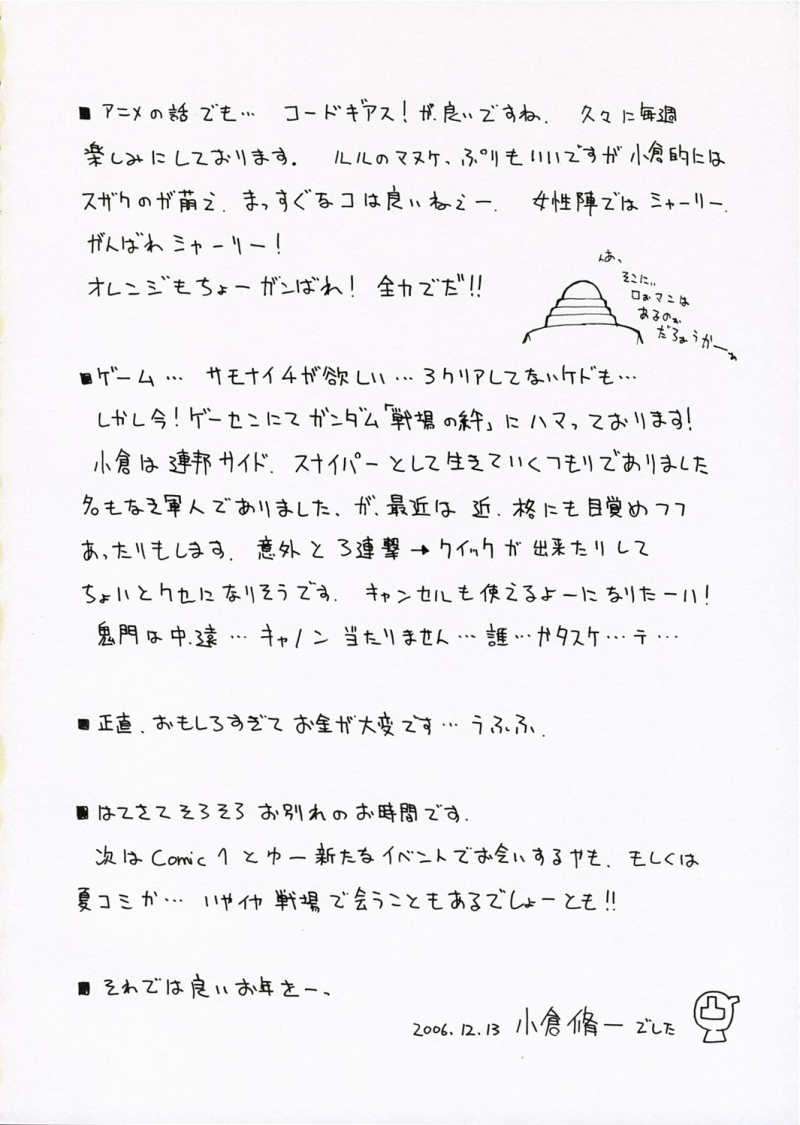 ■ アニメの話でも… コードギアス!が、良いですね、 久々に毎週
楽しみにしております。 ルルのマヌケ、ぷりもいいですが小倉的には
スザクのが萌え、まっすぐなコは良いねぇー、 女性陣ではシャーリー、
がんばれシャーリー!
オレンジもちょーガンばれ! 全力でだ!!
あぁ、
そこに、、
ロマンは
あるの
だろうかーぁ
■ ゲーム… サモナイ4が欲しい…3クリアしてないケドも…
しかし今!ゲーセンにてガンダム「戦場の絆」にハマっております!
小倉は連邦サイド、スナイパーとして生きていくつもりでありました
名もなき軍人でありました、が、最近は 近、格にも目覚めつつ
あったりもします、意外と3連撃→クイックが出来たりして
ちょいとクセになりそうです、 キャンセルも使えるよーになりたーい!
鬼門は中、遠… キャノン当たりません…誰…かタスケ…テ…
■ 正直、おもしろすぎてお金が大変です…うふふ、
■ はてさてそろそろお別れのお時間です、
次はComic1とゆー新たなイベントでお会いするやも、もしくは
夏コミか… いやイヤ戦場で会うこともあるでしょーとも!!
■ それでは良いお年をー、
2006.12.13 小倉脩一でした
凸